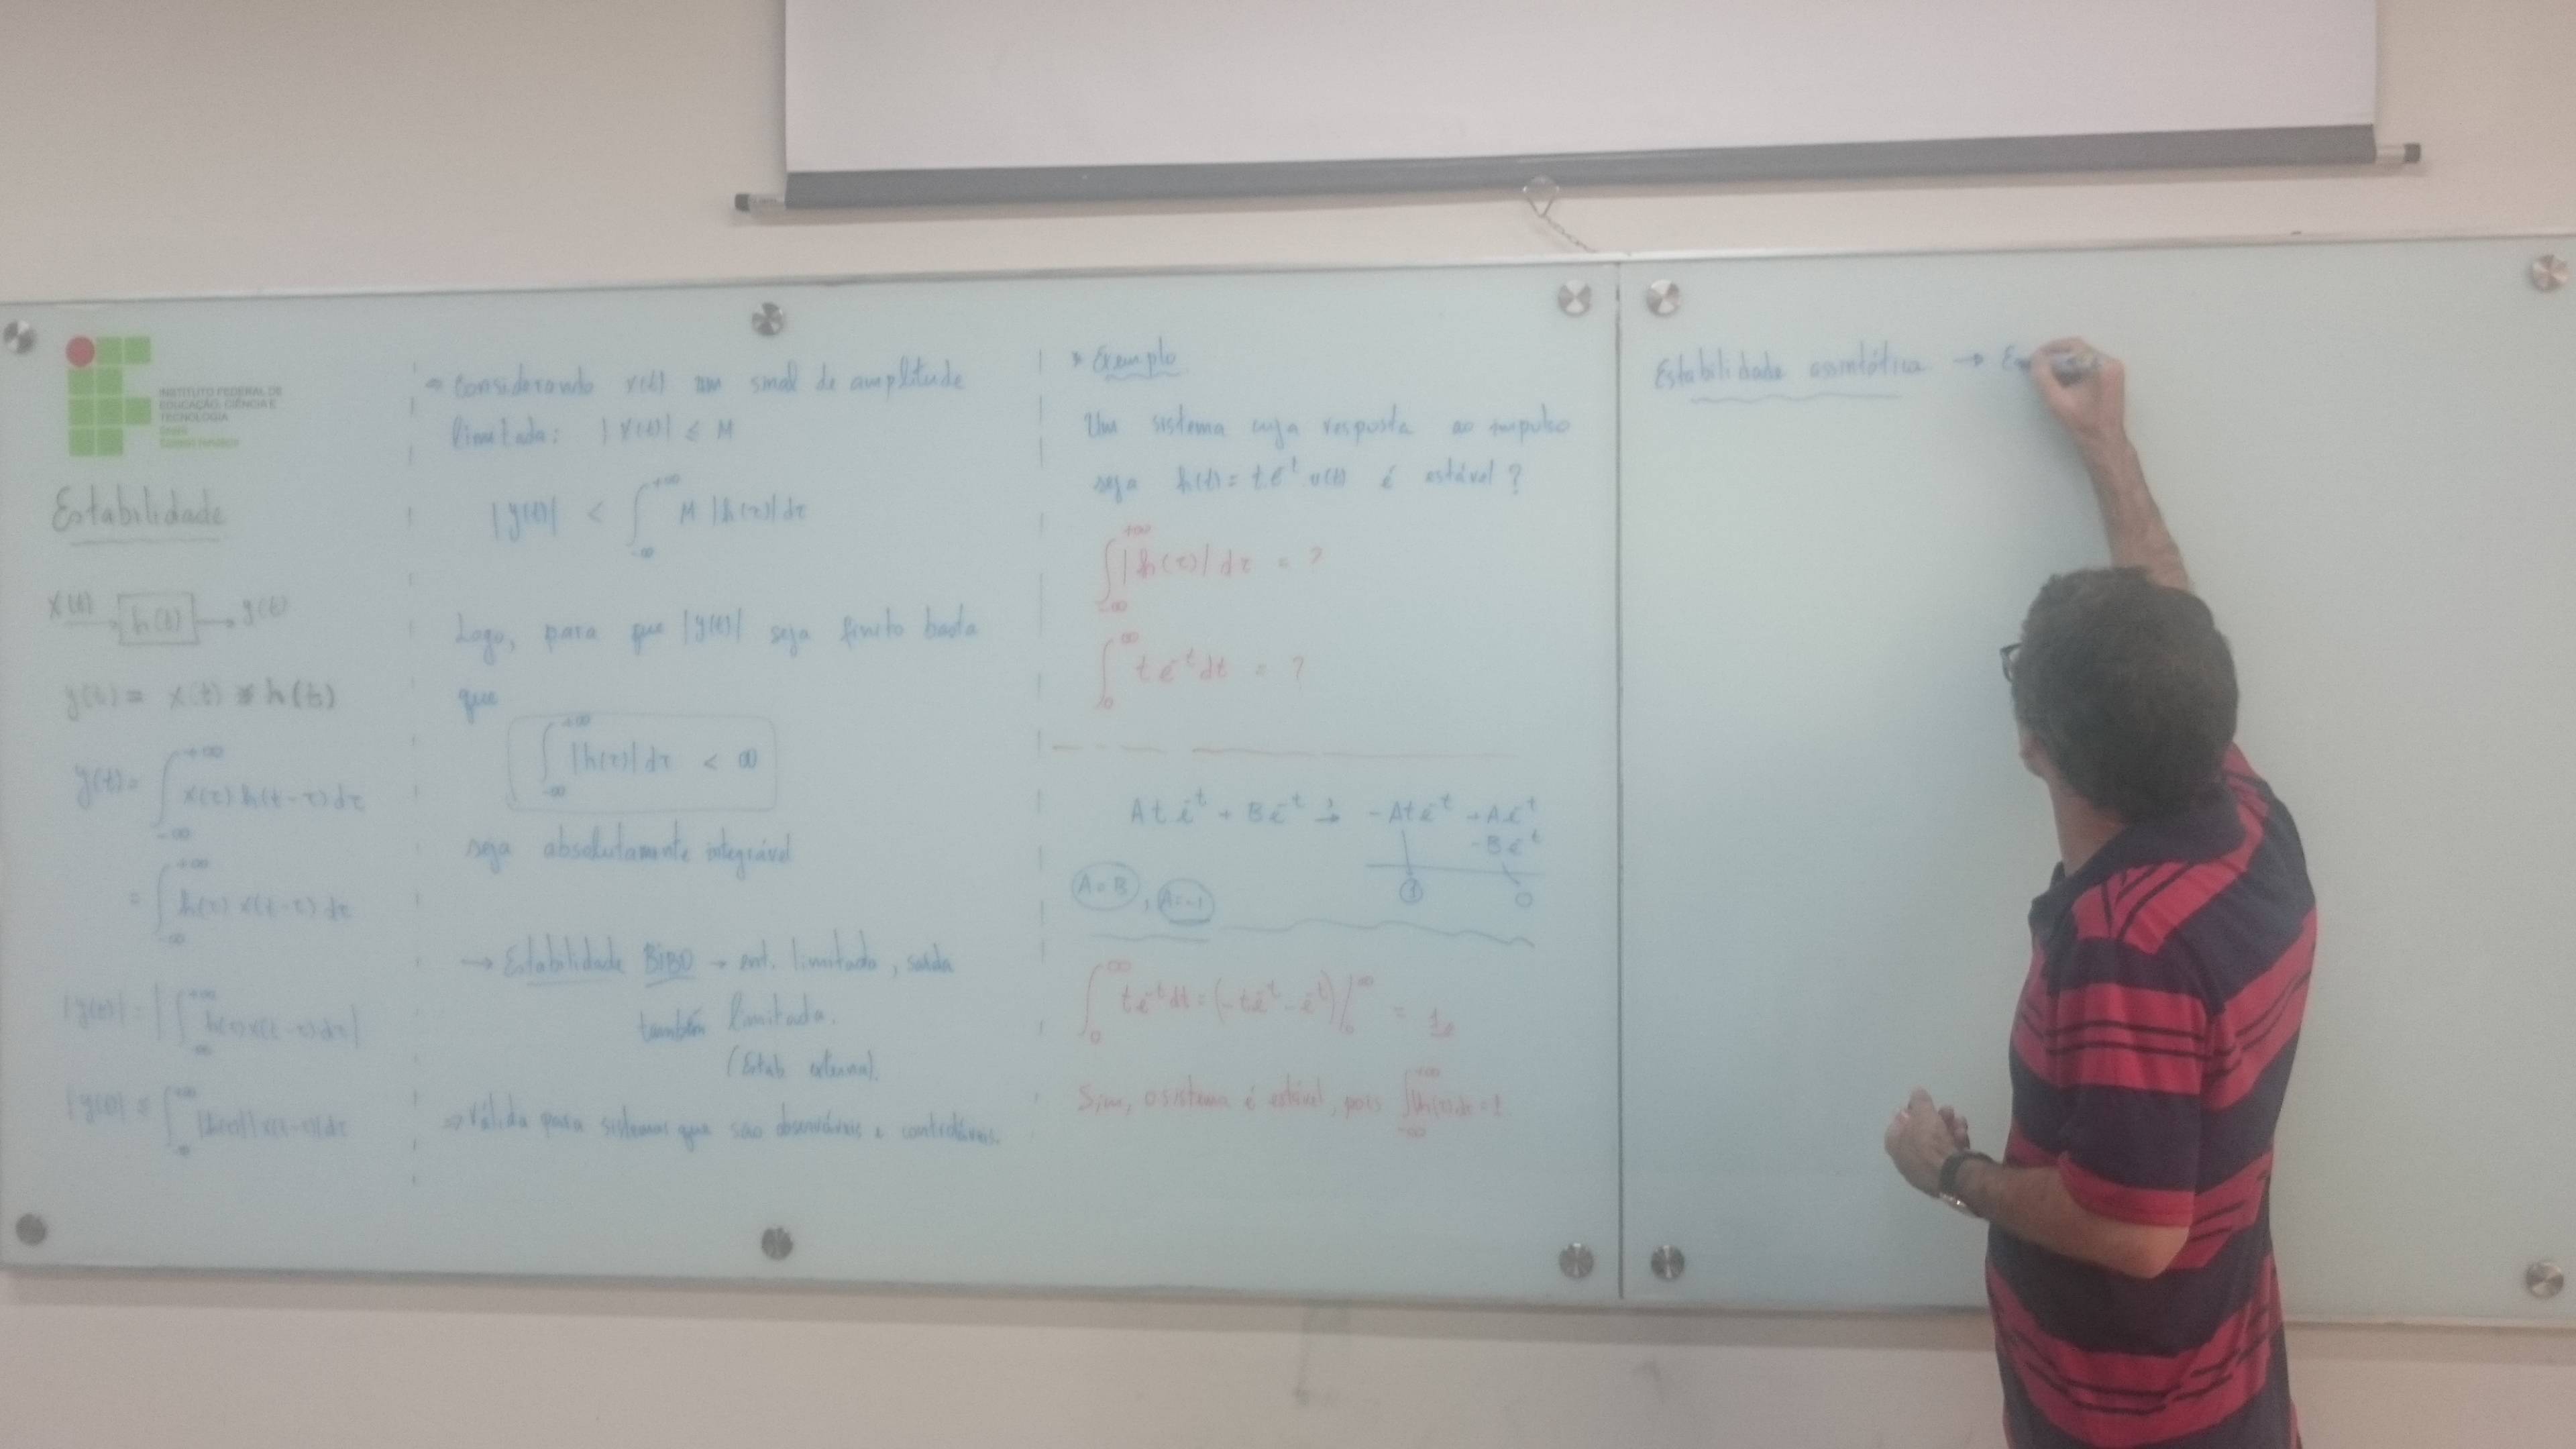 INSTITUTO FEDERAL DE
EDUCAÇÃO, CIÊNCIA E
TECNOLOGIA
Ceará
Estabilidade
x(t) → h(t) → y(t)
y(t) = x(t) * h(t)
y(t) = ∫_{-∞}^{+∞} x(τ) h(t-τ) dτ
= ∫_{-∞}^{+∞} h(τ) x(t-τ) dτ
|y(t)| = | ∫_{-∞}^{+∞} h(τ) x(t-τ) dτ |
|y(t)| ≤ ∫_{-∞}^{+∞} |h(τ)| |x(t-τ)| dτ
⇒ Considerando x(t) um sinal de amplitude
limitada: |x(t)| ≤ M
|y(t)| < ∫_{-∞}^{+∞} M |h(τ)| dτ
Logo, para que |y(t)| seja finito basta
que
∫_{-∞}^{+∞} |h(τ)| dτ < ∞
seja absolutamente integrável
→ Estabilidade BIBO → ent. limitada, saída
também limitada.
(Estab. externa).
⇒ Válida para sistemas que são observáveis e controláveis.
Exemplo
Um sistema cuja resposta ao impulso
seja h(t) = t.e^{-t} u(t) é estável?
∫_{-∞}^{+∞} |h(τ)| dτ = ?
∫_{0}^{∞} t e^{-t} dt = ?
A t e^{-t} + B e^{-t} → -A t e^{-t} + A e^{-t}
- B e^{-t}
1 0
A = B, A = -1
∫_{0}^{∞} t e^{-t} dt = (-t e^{-t} - e^{-t}) |_{0}^{∞} = 1
Sim, o sistema é estável, pois ∫_{-∞}^{+∞} |h(τ)| dτ = 1
Estabilidade assintótica →